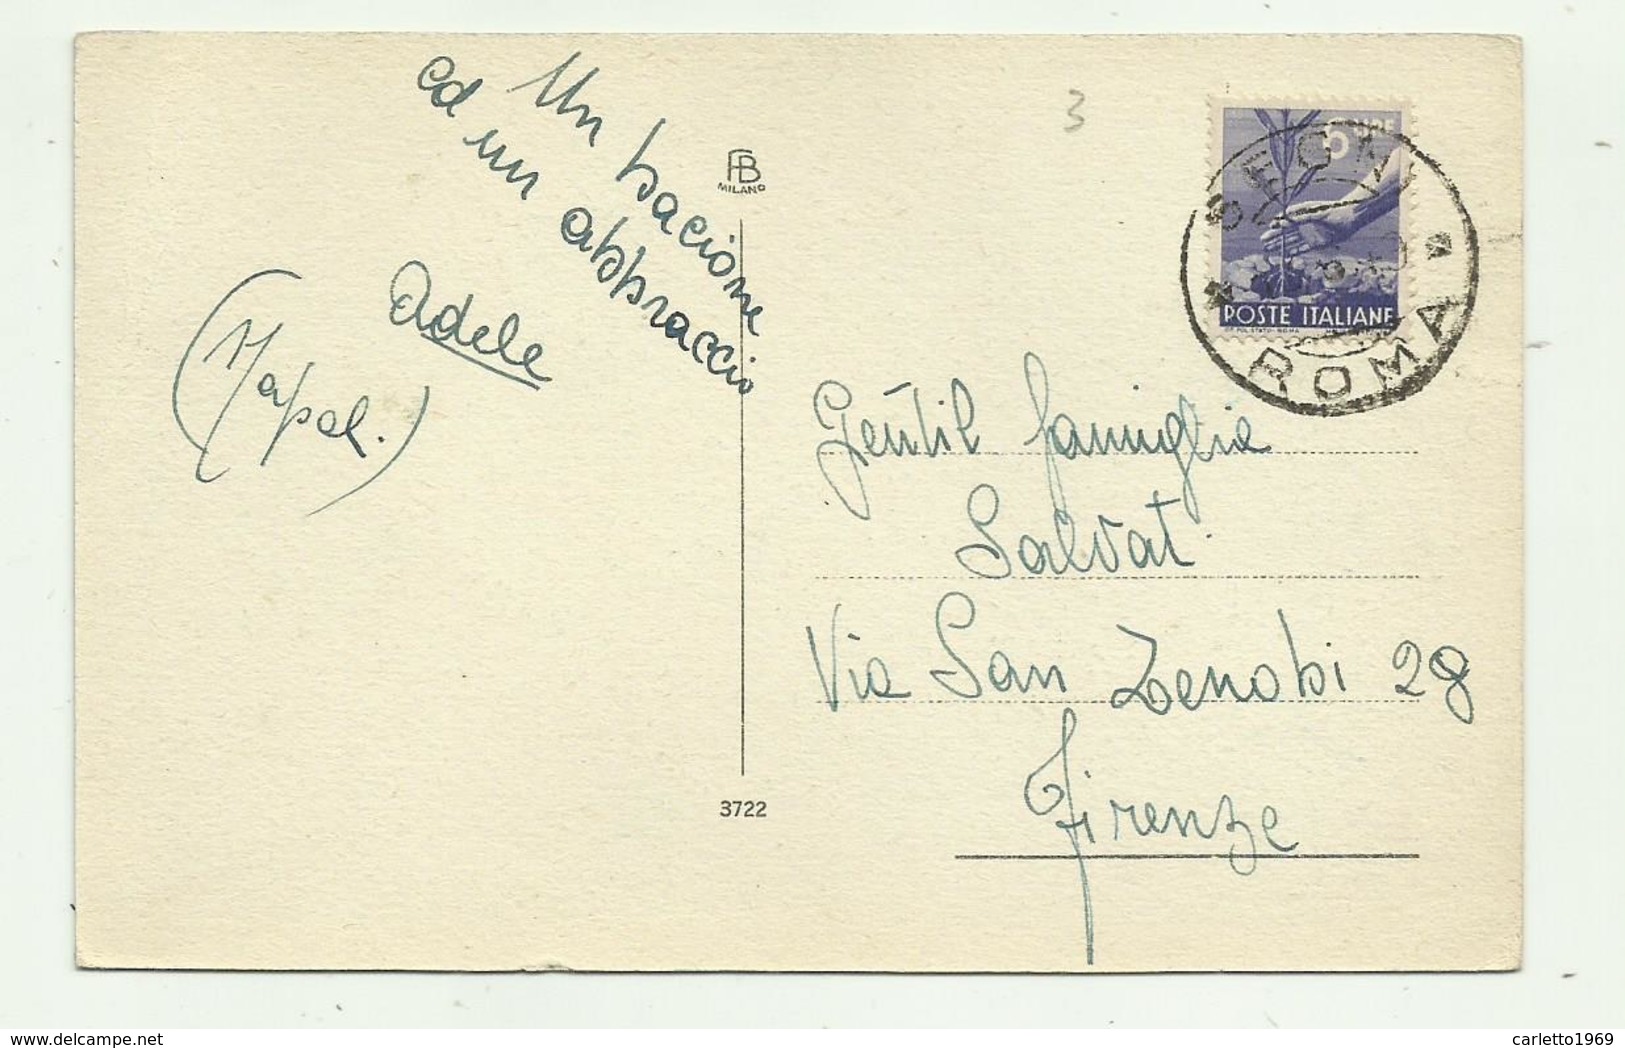 Un bacione
ed un abbraccio
Adele
(Napol.)
FB
MILANO
3722
3
5 LIRE
POSTE ITALIANE
SEGNI
ROMA
Gentil famiglia
Salvat.
Via San Zenobi 28
Firenze
www.delcampe.net
carletto1969